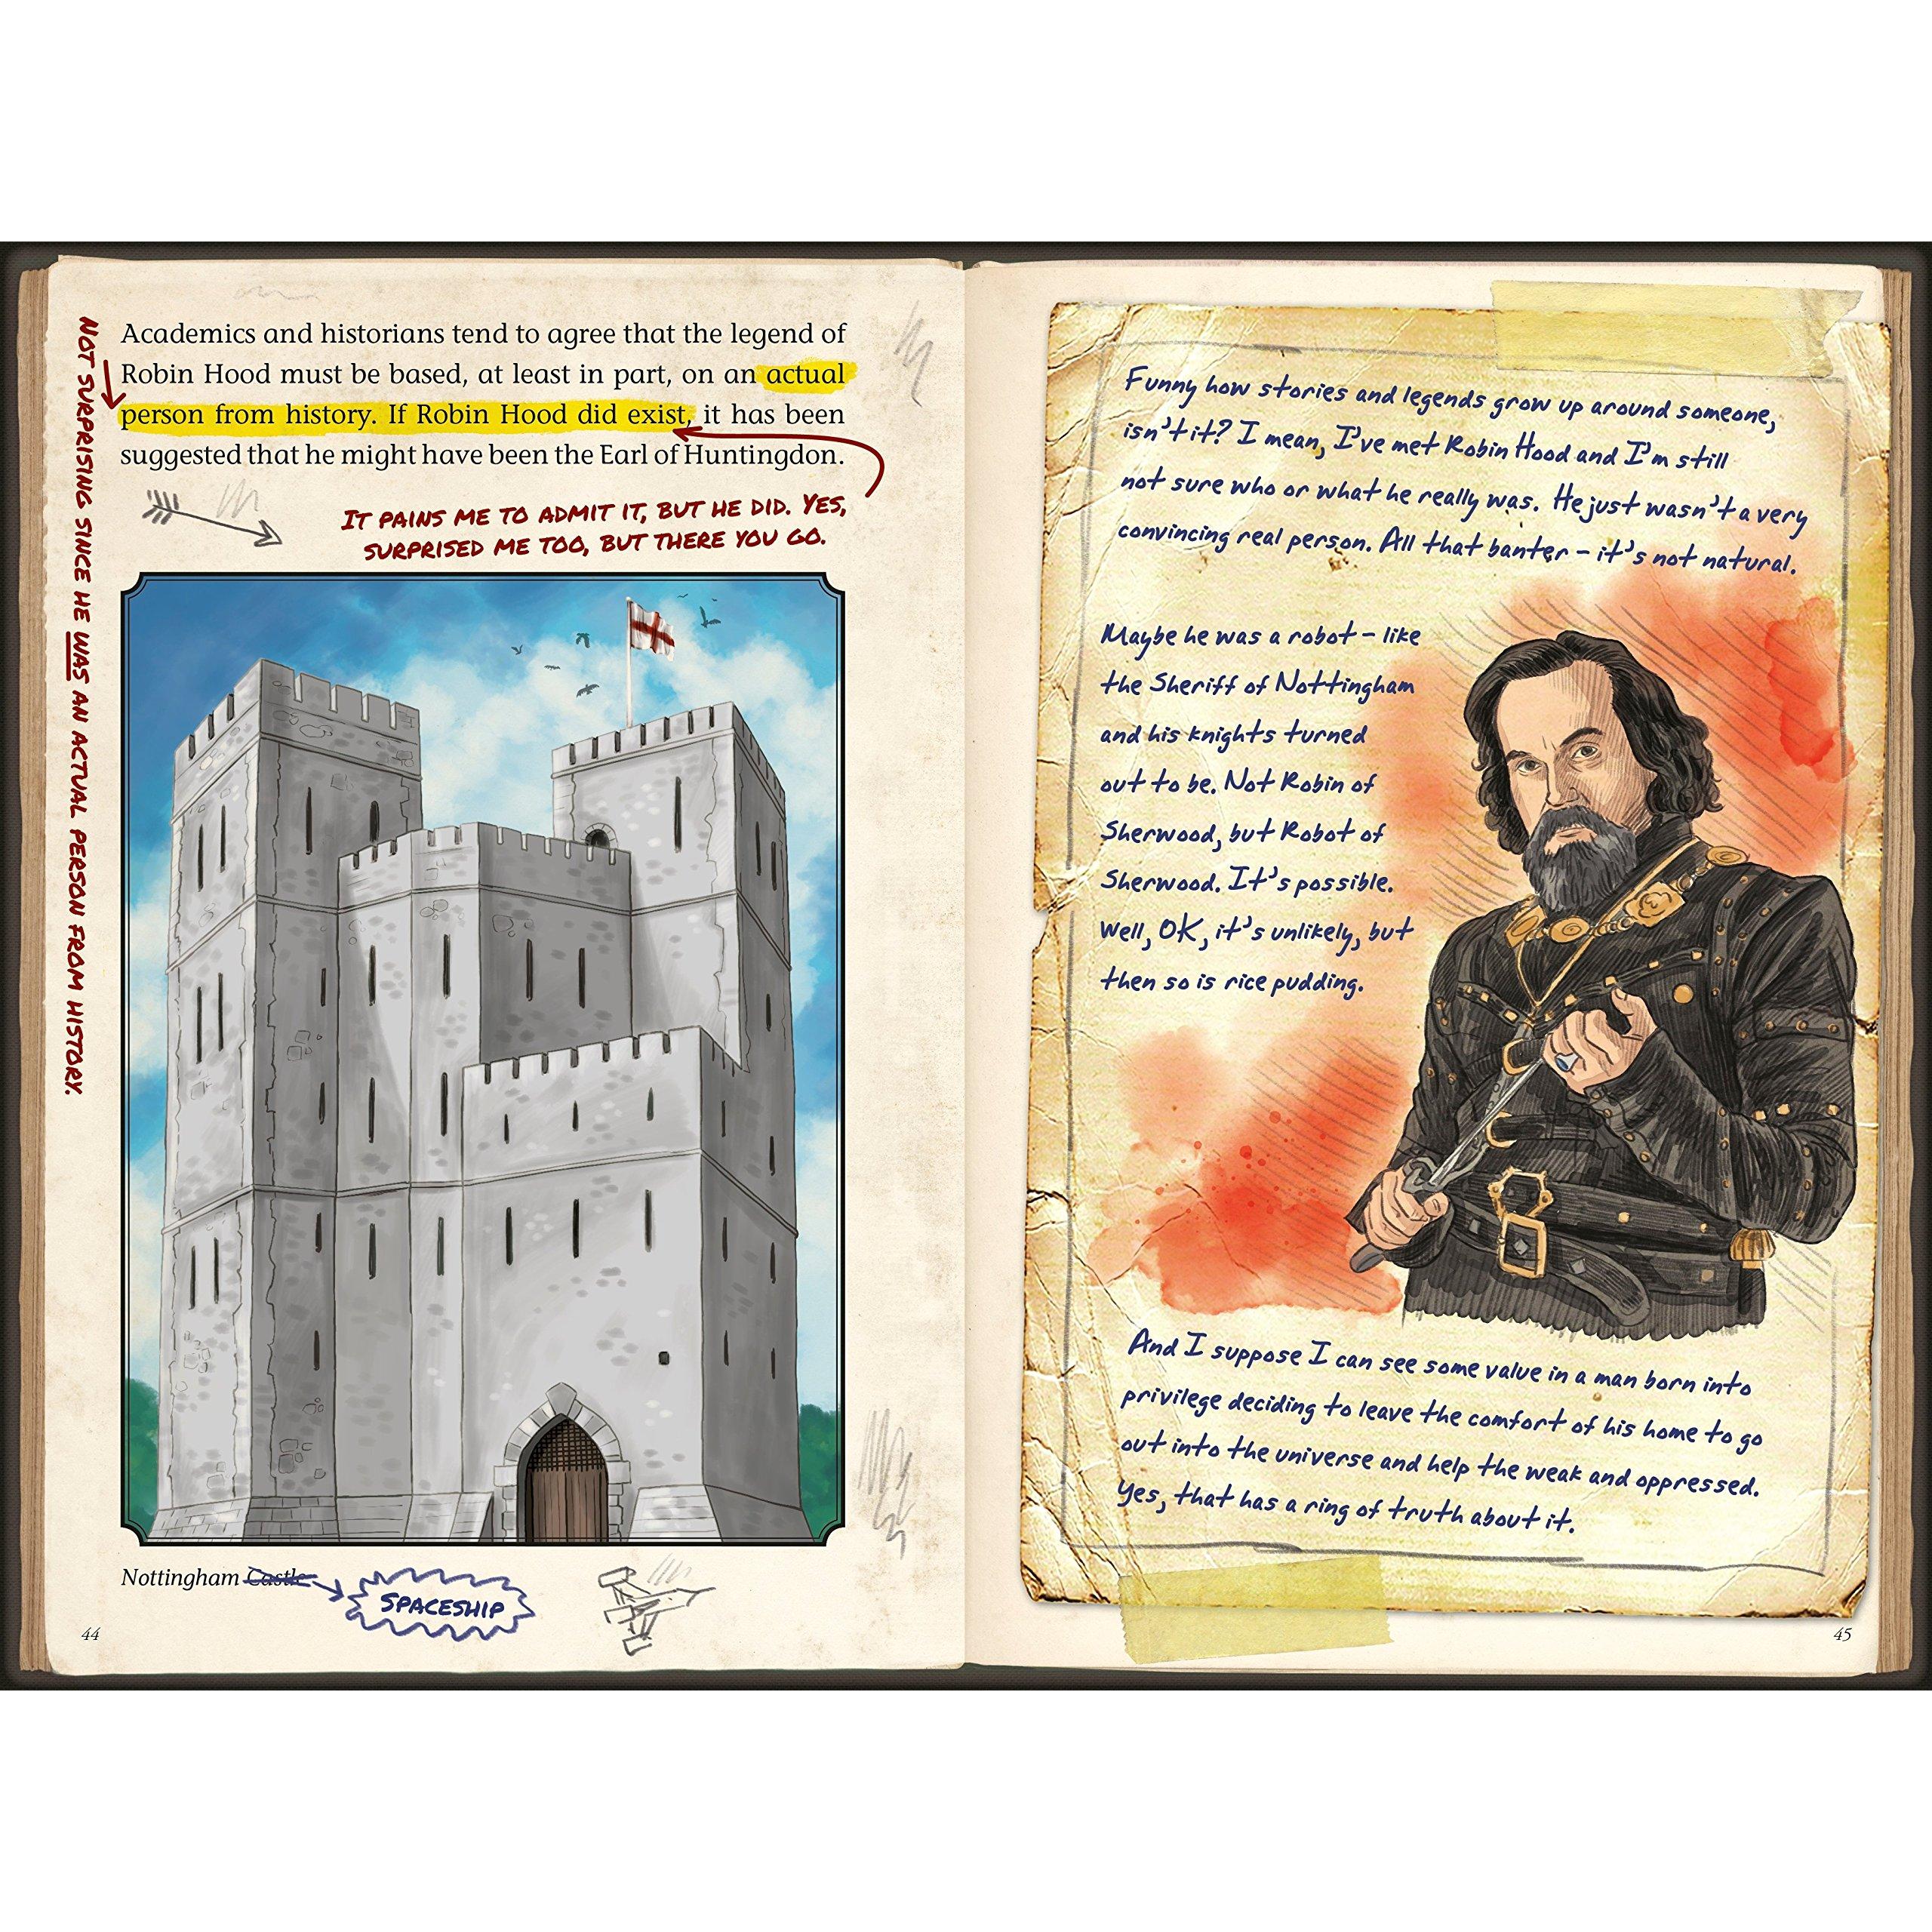 Academics and historians tend to agree that the legend of
Robin Hood must be based, at least in part, on an actual
person from history. If Robin Hood did exist, it has been
suggested that he might have been the Earl of Huntingdon.
NOT SURPRISING SINCE HE WAS AN ACTUAL PERSON FROM HISTORY.
IT PAINS ME TO ADMIT IT, BUT HE DID. YES,
SURPRISED ME TOO, BUT THERE YOU GO.
Nottingham Castle
SPACESHIP
44
Funny how stories and legends grow up around someone,
isn't it? I mean, I've met Robin Hood and I'm still
not sure who or what he really was. He just wasn't a very
convincing real person. All that banter – it's not natural.
Maybe he was a robot – like
the Sheriff of Nottingham
and his knights turned
out to be. Not Robin of
Sherwood, but Robot of
Sherwood. It's possible.
Well, OK, it's unlikely, but
then so is rice pudding.
And I suppose I can see some value in a man born into
privilege deciding to leave the comfort of his home to go
out into the universe and help the weak and oppressed.
Yes, that has a ring of truth about it.
45